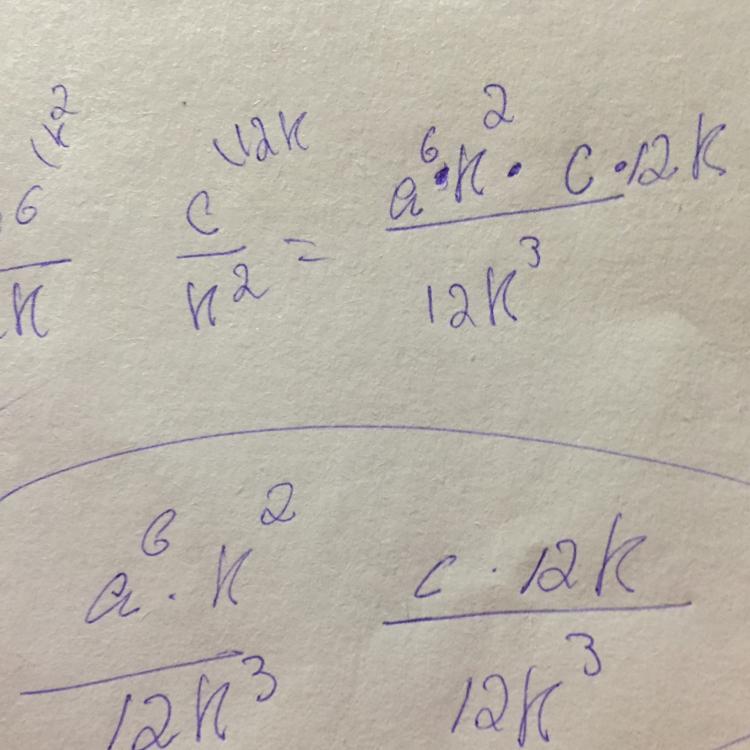 6^{\k^2}/k c^{\12k}/k^2 = a^6 · k^2 · c · 12k/12k^3
a^6 · k^2/12k^3 c · 12k/12k^3